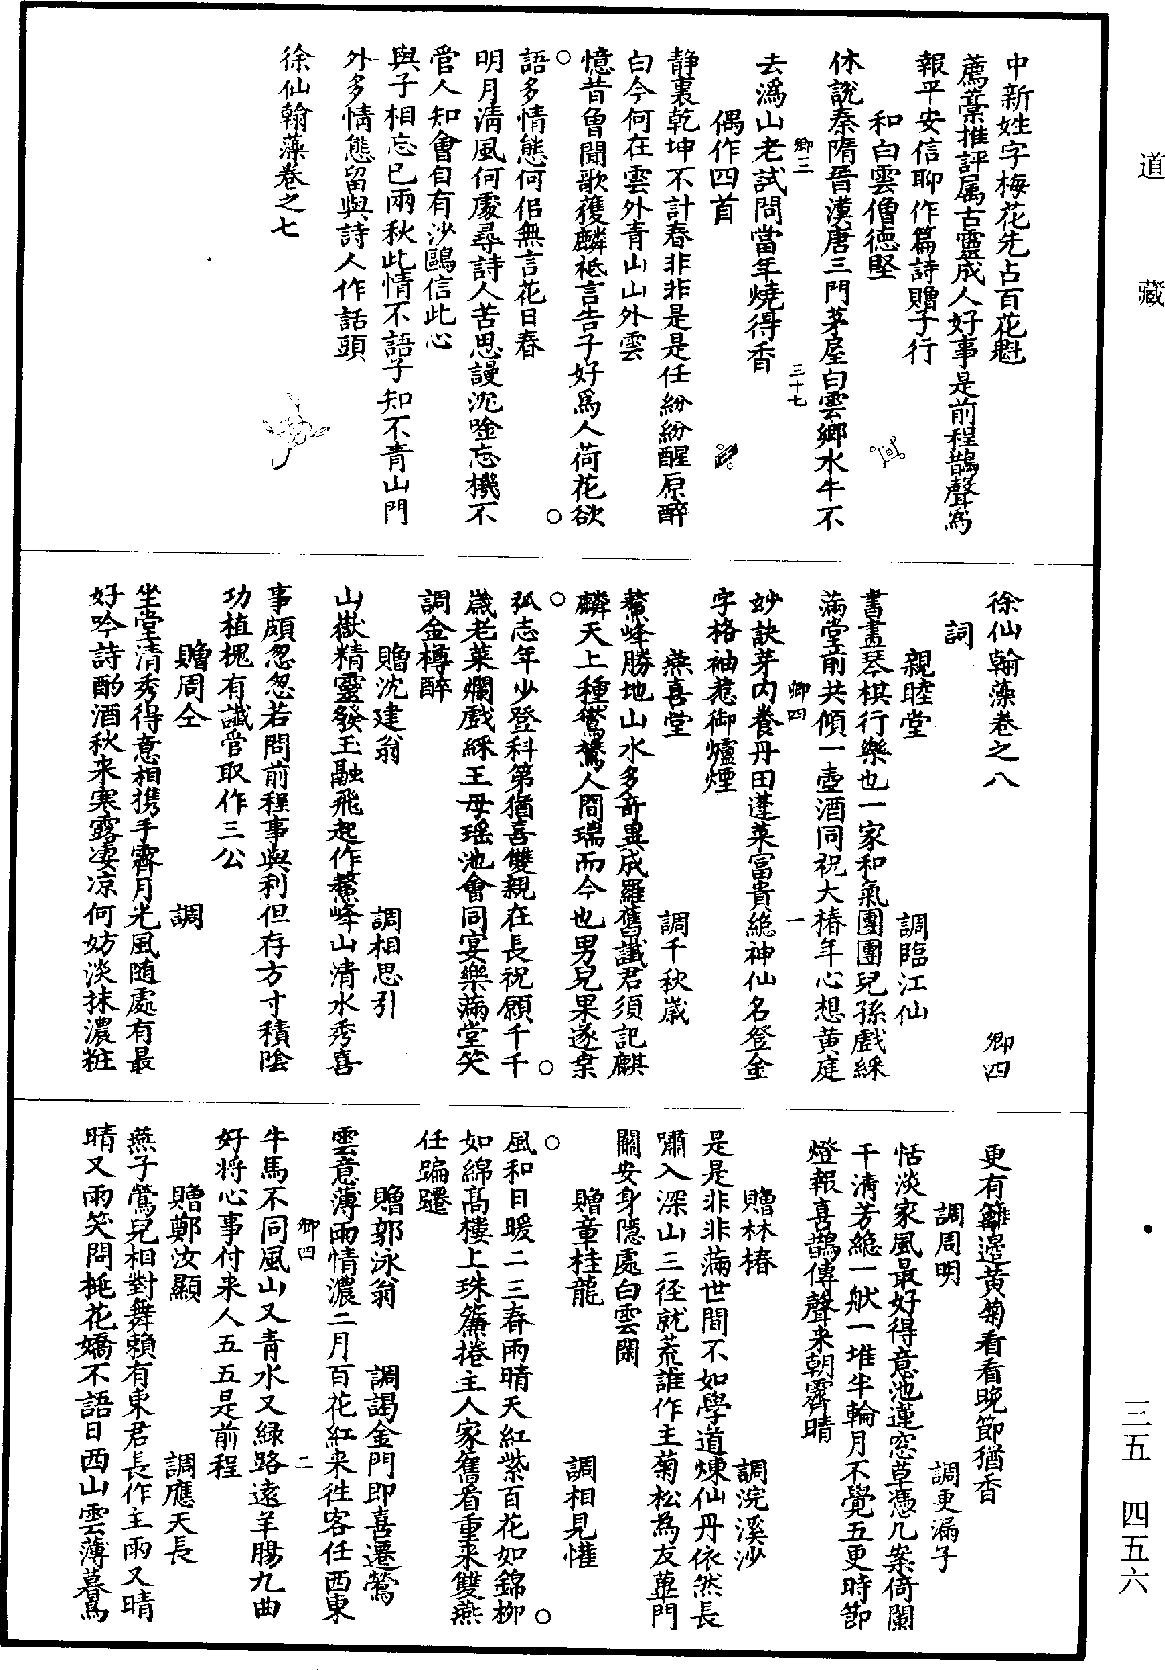 道藏
三五 四五六
中新姓字梅花先占百花魁
薦藁推評属古靈成人好事是前程鵲聲爲
報平安信聊作篇詩贈子行
和白雲僧德堅
休説秦隋晉漢唐三門茅屋白雲鄉水牛不
卿三 三十七
去潙山老試問當年燒得香
偶作四首
静裏乾坤不計春非非是是任紛紛醒原醉
白今何在雲外青山山外雲
憶昔曾聞歌獲麟祗言告子好爲人荷花欲
○ ○
語多情態何佀無言花日春
明月清風何處尋詩人苦思謾沉唫忘機不
管人知會自有沙鷗信此心
與子相忘已兩秋此情不語子知不青山門
外多情態留與詩人作話頭
徐仙翰藻卷之七
徐仙翰藻卷之八 卿四
詞
親睦堂 調臨江仙
書畫琴棋行樂也一家和氣團團兒孫戲綵
滿堂前共傾一壺酒同祝大椿年心想黄庭
卿四 一
妙訣芽内養丹田蓬萊富貴絶神仙名登金
字格袖惹御爐煙
燕喜堂 調千秋歲
鰲峰勝地山水多奇異成羅舊讖君須記麒
麟天上種鸑鷟人間瑞而今也男兒果遂桒
○ ○
弧志年少登科第猶喜雙親在長祝願千千
歲老萊斕戲綵王母瑶池會同宴樂滿堂笑
調金樽醉
贈沈建翁 調相思引
山嶽精靈發玉融飛起作鰲峰山清水秀喜
事頗怱怱若問前程事與利但存方寸積陰
功植槐有讖管取作三公
贈周仝 調
坐堂清秀得意相携手霽月光風随處有最
好吟詩酌酒秋来寒露凄凉何妨淡抹濃粧
更有籬邊黄菊看看晚節猶香
調周明 調更漏子
恬淡家風最好得意池蓮窓草憑几案倚闌
干清芳絶一般一堆半輪月不覺五更時節
燈報喜鵲傳聲来朝霽晴
贈林椿 調浣溪沙
是是非非滿世間不如學道煉仙丹依然長
嘯入深山三径就荒誰作主菊松為友蓽門
關安身隱處白雲閑
贈章桂龍 調相見懽
○ ○
風和日暖二三春雨晴天紅紫百花如錦柳
如綿髙樓上珠簾捲主人家舊看重来雙燕
任蹁躚
贈郭泳翁 調謁金門即喜遷鶯
雲意薄雨情濃二月百花紅来徃客任西東
卿四 二
牛馬不同風山又青水又緑路逺羊腸九曲
好将心事付来人五五是前程
贈鄭汝顯 調應天長
燕子鶯兒相對舞頼有東君長作主雨又晴
晴又雨笑問桃花嬌不語日西山雲薄暮鳥